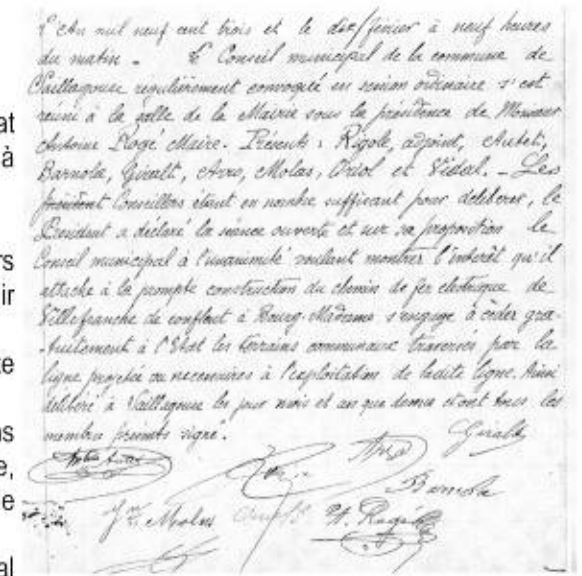 at
à
rs
ir
te
ns
e,
e
al
L'An mil neuf cent trois et le dix février à neuf heures
du matin. Le Conseil municipal de la commune de
Saillagouse regulièrement convoqué en session ordinaire s'est
réuni à la salle de la Mairie sous la présidence de Monsieur
Antoine Rogé Maire. Présents : Rigole, adjoint, Autet,
Barnola, Giralt, Arro, Molas, Oriol et Vidal. Les
président Conseillers étant en nombre suffisant pour délibérer, le
Président a déclaré la séance ouverte et sur sa proposition le
Conseil municipal à l'unanimité voulant montrer l'intérêt qu'il
attache à la prompte construction du chemin de fer électrique de
Villefranche de conflent à Bourg-Madame s'engage à céder gra-
-tuitement à l'Etat les terrains communaux traversés par la
ligne projetée ou nécessaires à l'exploitation de ladite ligne. Ainsi
délibéré à Saillagouse les jour mois et an que dessus et ont tous les
membres présents signé.
Giralt
Arro
Barnola
Jn. Molas
A. Rogé